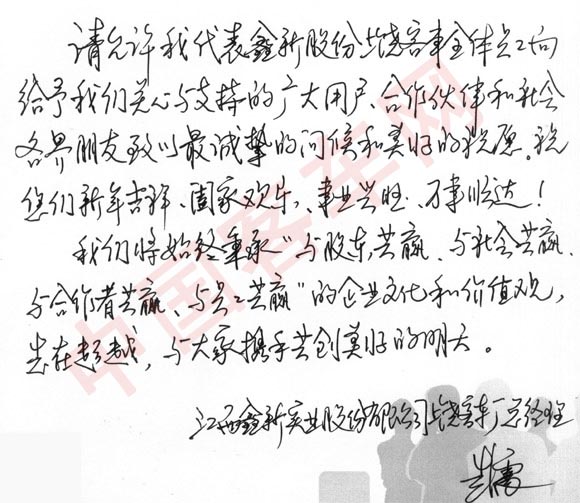 请允许我代表鑫新股份上饶客车全体员工向
给予我们关心与支持的广大用户、合作伙伴和社会
各界朋友致以最诚挚的问候和美好的祝愿。祝
您们新年吉祥、阖家欢乐、事业兴旺、万事顺达！
我们将始终秉承“与股东共赢、与社会共赢、
与合作者共赢、与员工共赢”的企业文化和价值观，
志在超越，与大家携手共创美好的明天。
江西鑫新实业股份有限公司上饶客车厂总经理
中国客车网